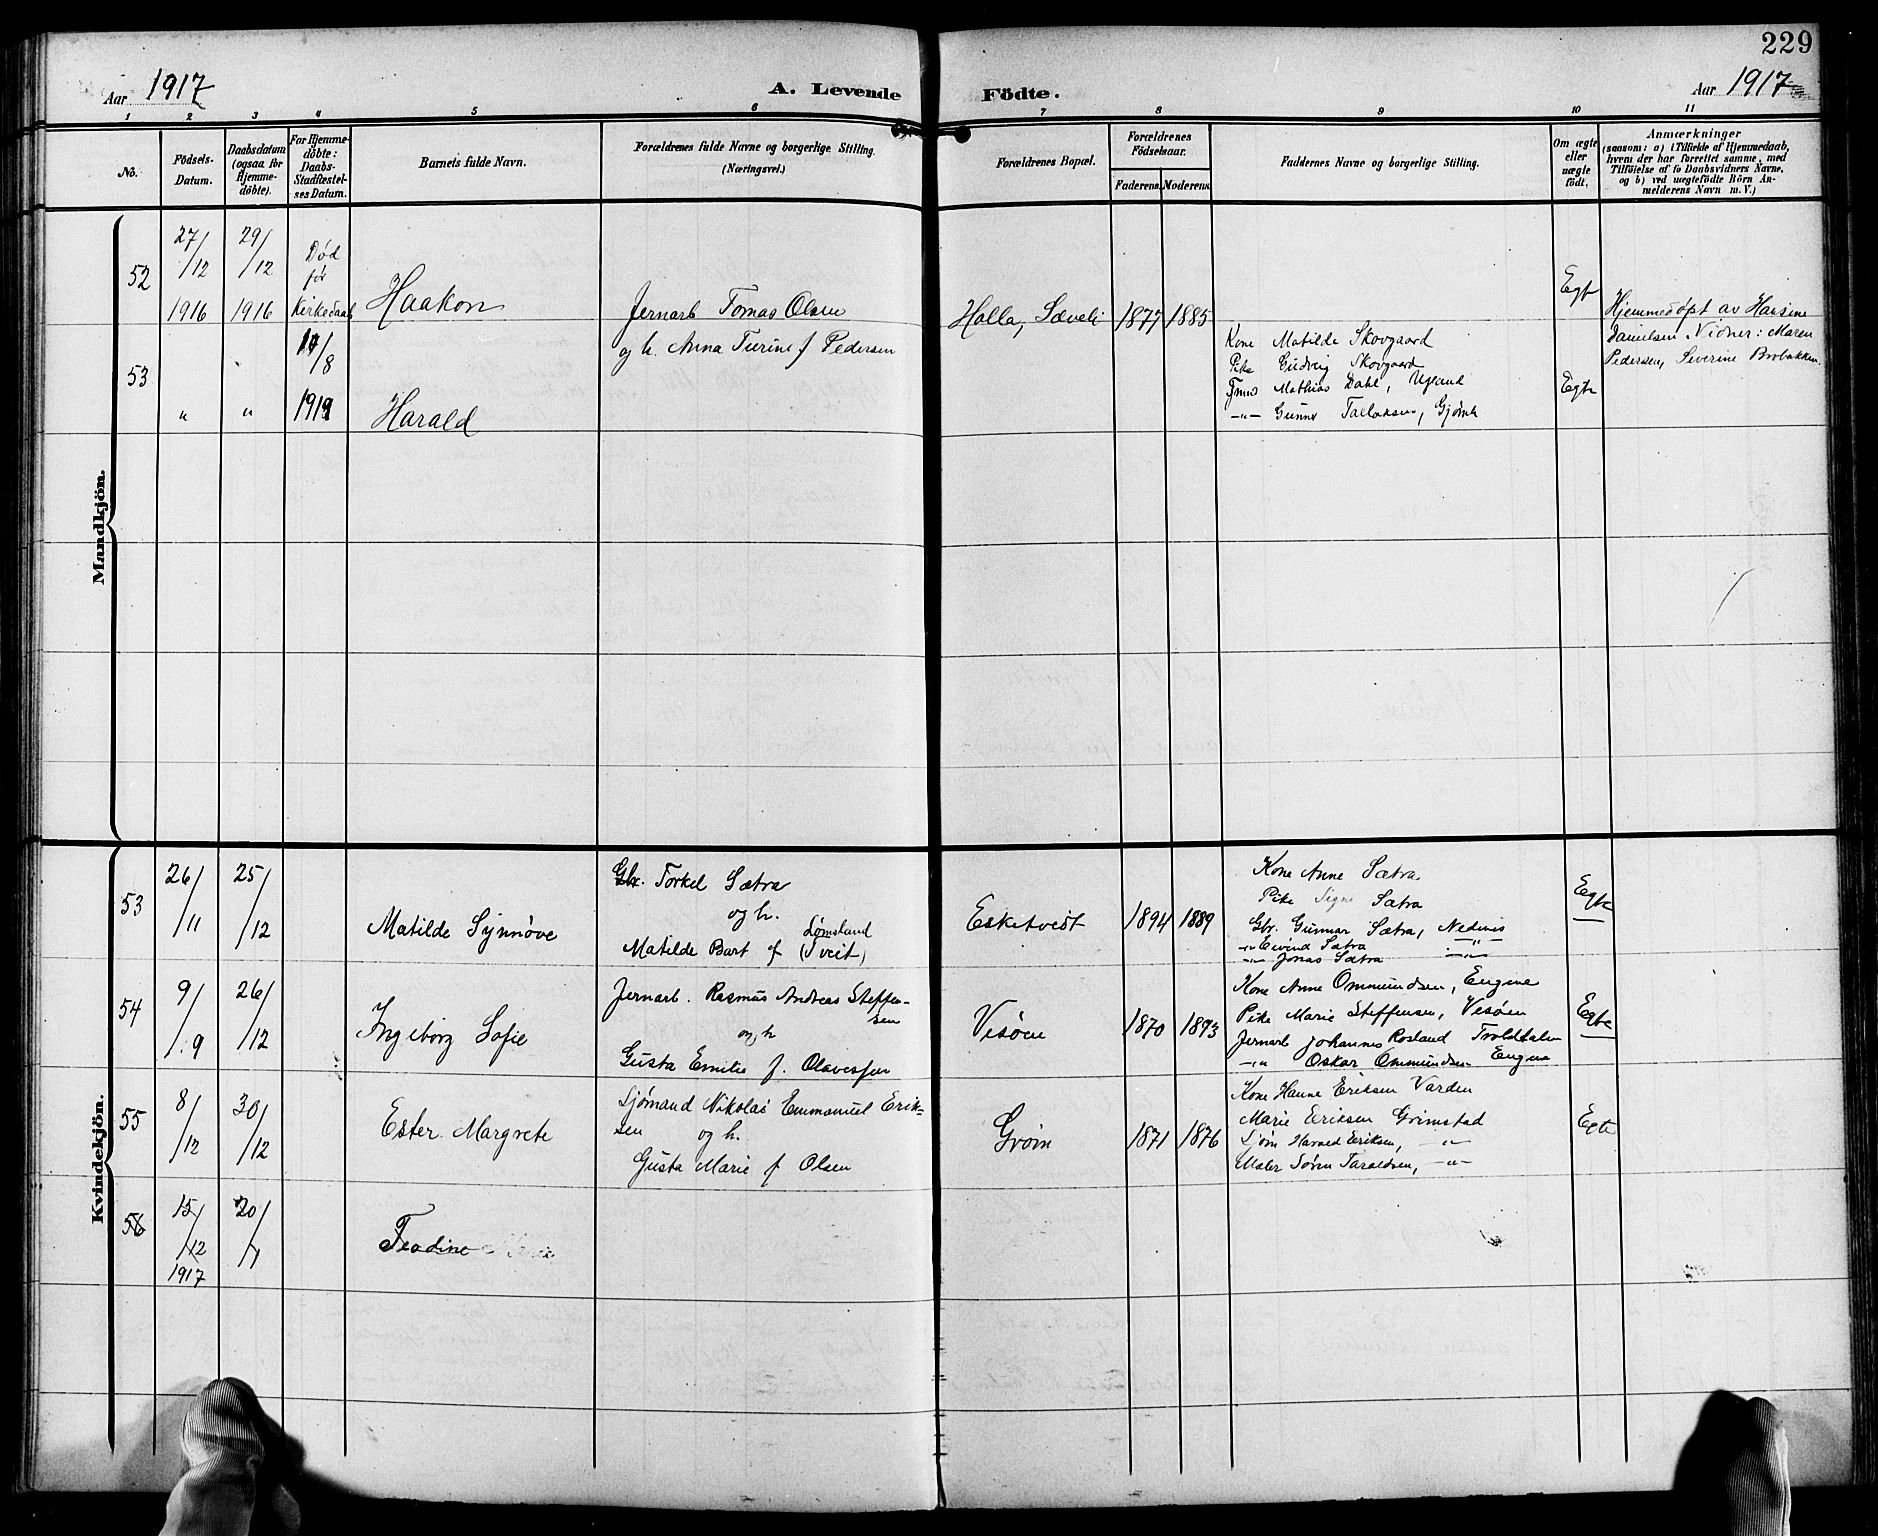 229
Aar 1917
A. Levende Födte.
Aar 1917
1 2 3 4 5 6 7 8 9 10 11
No.
Födsels-
Datum.
Daabsdatum
(ogsaa for
Hjemme-
döbte).
For Hjemme-
döbte:
Daabs-
Stadfæstel-
ses Datum.
Barnets fulde Navn.
Forældrenes fulde Navne og borgerlige Stilling.
(Næringsvei.)
Forældrenes Bopæl.
Forældrenes
Födselsaar.
Faderens. Moderens.
Faddernes Navne og borgerlige Stilling.
Om ægte
eller
uægte
födt.
Anmærkninger
(saasom: a) i Tilfælde af Hjemmedaab,
hvem der har forrettet samme, med
Tilföielse af to Daabsvidners Navne,
og b) ved uægtefödte Börn An-
melderens Navn m. V.)
Mandkjön.
52
27/12
1916
29/12
1916
Død
før
Kirkedaab
Haakon
Jernarb Tomas Olsen
og h. Anna Turine f Pedersen
Holla, Sæveli
1877 1885
Egte
Hjemmedøpt av Hansine
Danielsen Vidner: Maren
Pedersen, Severine Brobakken
53
" "
/8
1919
Harald
Kone Matilde Skovgaard
Pike Gudveig Skovgaard
Mathias Dahl,
-"- Gunnar Tallaksen,
Egte
Kvindekjön.
53
26/11
25/12
Matilde Synnöve
Gbr. Torkel Sætra
og h.
Matilde Bart f Lømsland
(Tveit)
Esketveit
1894 1889
Kone Anne Sætra
Pike Signe Sætra
Gbr. Gunnar Sætra, Nedenes
-"- Eivind Sætra -"-
-"- Jonas Sætra -"-
Egte
54
9/9
26/12
Ingeborg Sofie
Jernarb. Rasmus Andreas Steffen-
sen
og h
Gusta Emilie f. Olavessen
Visøen
1870 1893
Kone Anne Ommundsen, Engene
Pike Marie Steffensen, Visøen
Jernarb Johannes Rosland Troldtalen
-"- Oskar Ommundsen Engene
Egte
55
8/12
30/12
Ester Margrete
Sjømand Nikolai Emmanuel Erik-
sen og h.
Gusta Marie f Olsen
Grøm
1871 1876
Kone Hanne Eriksen Varden
Marie Eriksen Grimstad
Sjøm Harald Eriksen, -"-
Maler Søren Taraldsen, -"-
Egte
56
15/12
1917
20/1
Teodine Marie